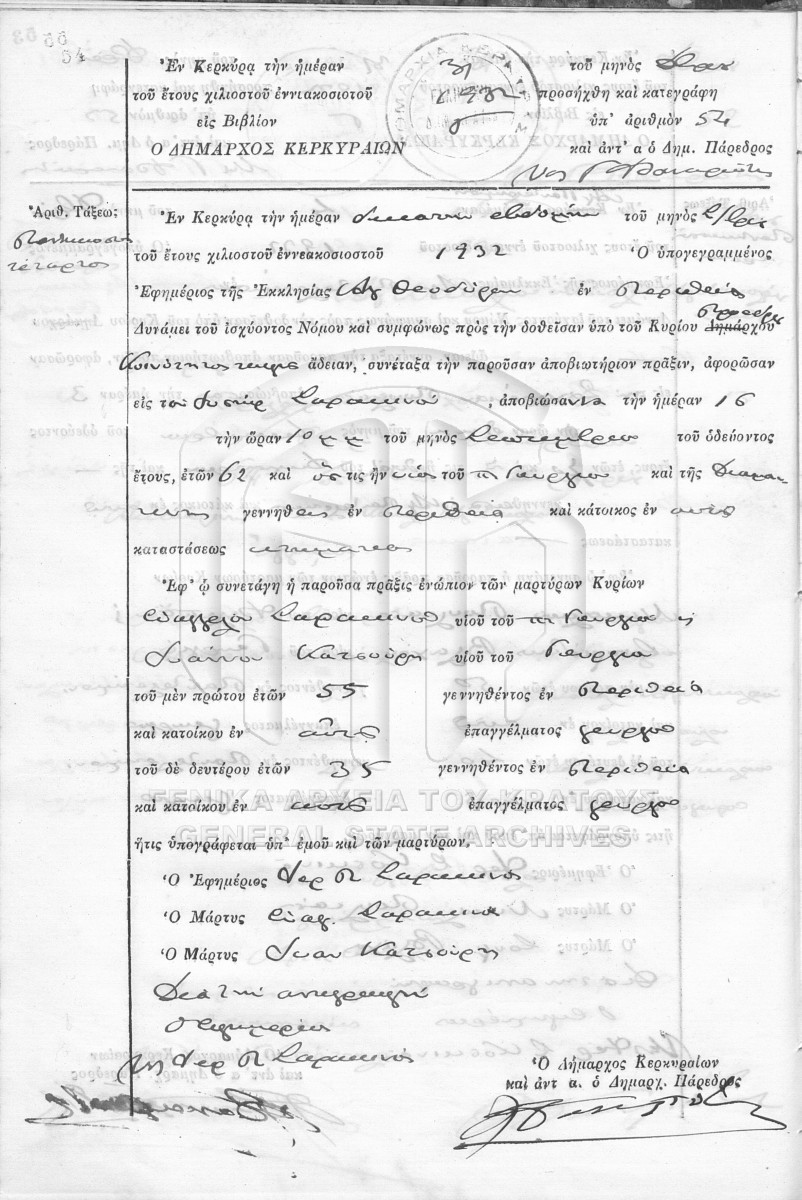 54
Ἐν Κερκύρᾳ τὴν ἡμέραν 31 τοῦ μηνὸς
τοῦ ἔτους χιλιοστοῦ ἐννιακοσιοτοῦ 1932 προσήχθη καὶ κατεγράφη
εἰς Βιβλίον ὑπ' ἀριθμὸν 54
Ο ΔΗΜΑΡΧΟΣ ΚΕΡΚΥΡΑΙΩΝ καὶ ἀντ' α ὁ Δημ. Πάρεδρος
Ἀριθ. Τάξεως
πεντηκοστὸς
τέταρτος
Ἐν Κερκύρᾳ τὴν ἡμέραν δεκάτην ἑβδόμην τοῦ μηνὸς
τοῦ ἔτους χιλιοστοῦ ἐννεακοσιοστοῦ 1932 Ὁ ὑπογεγραμμένος
Ἐφημέριος τῆς Ἐκκλησίας Ἁγ Θεοδώρου ἐν Περιθείᾳ
Δυνάμει τοῦ ἰσχύοντος Νόμου καὶ συμφώνως πρὸς τὴν δοθεῖσαν ὑπὸ τοῦ Κυρίου Δημάρχου Προέδρου
Κοινότητος ἄδειαν, συνέταξα τὴν παροῦσαν ἀποβιωτήριον πρᾶξιν, ἀφορῶσαν
εἰς τὸν Σαρακηνὸ , ἀποβιώσαντα τὴν ἡμέραν 16
τὴν ὥραν 10 π μ τοῦ μηνὸς Σεπτεμβρίου τοῦ ὁδεύοντος
ἔτους, ἐτῶν 62 καὶ ὅστις ἦν υἱὸς τοῦ π Γεωργίου καὶ τῆς Διαμαν
τίνης γεννηθεὶς ἐν Περιθείᾳ καὶ κάτοικος ἐν αὐτῇ
καταστάσεως κτηματίας
Ἐφ' ᾧ συνετάγη ἡ παροῦσα πρᾶξις ἐνώπιον τῶν μαρτύρων Κυρίων
Εὐαγγέλου Σαρακηνοῦ υἱοῦ τοῦ π Γεωργίου ς
Ἰωάννου Κατσούρη υἱοῦ τοῦ Γεωργίου
τοῦ μὲν πρώτου ἐτῶν 55 γεννηθέντος ἐν Περιθείᾳ
καὶ κατοίκου ἐν αὐτῇ ἐπαγγέλματος γεωργοῦ
τοῦ δὲ δευτέρου ἐτῶν 35 γεννηθέντος ἐν Περιθείᾳ
καὶ κατοίκου ἐν αὐτῇ ἐπαγγέλματος γεωργοῦ
ΓΕΝΙΚΑ ΑΡΧΕΙΑ ΤΟΥ ΚΡΑΤΟΥΣ
GENERAL STATE ARCHIVES
ἥτις ὑπογράφεται ὑπ' ἐμοῦ καὶ τῶν μαρτύρων.
Ὁ Ἐφημέριος Ἱερ Π. Σαρακηνὸς
Ὁ Μάρτυς Εὐαγ. Σαρακηνὸς
Ὁ Μάρτυς Ἰωάν Κατσούρης
Διὰ τὴν ἀντιγραφὴν
Ὁ Ἐφημέριος
Ἱερ Π. Σαρακηνὸς
Ὁ Δήμαρχος Κερκυραίων
καὶ ἀντ α. ὁ Δημαρχ. Πάρεδρος